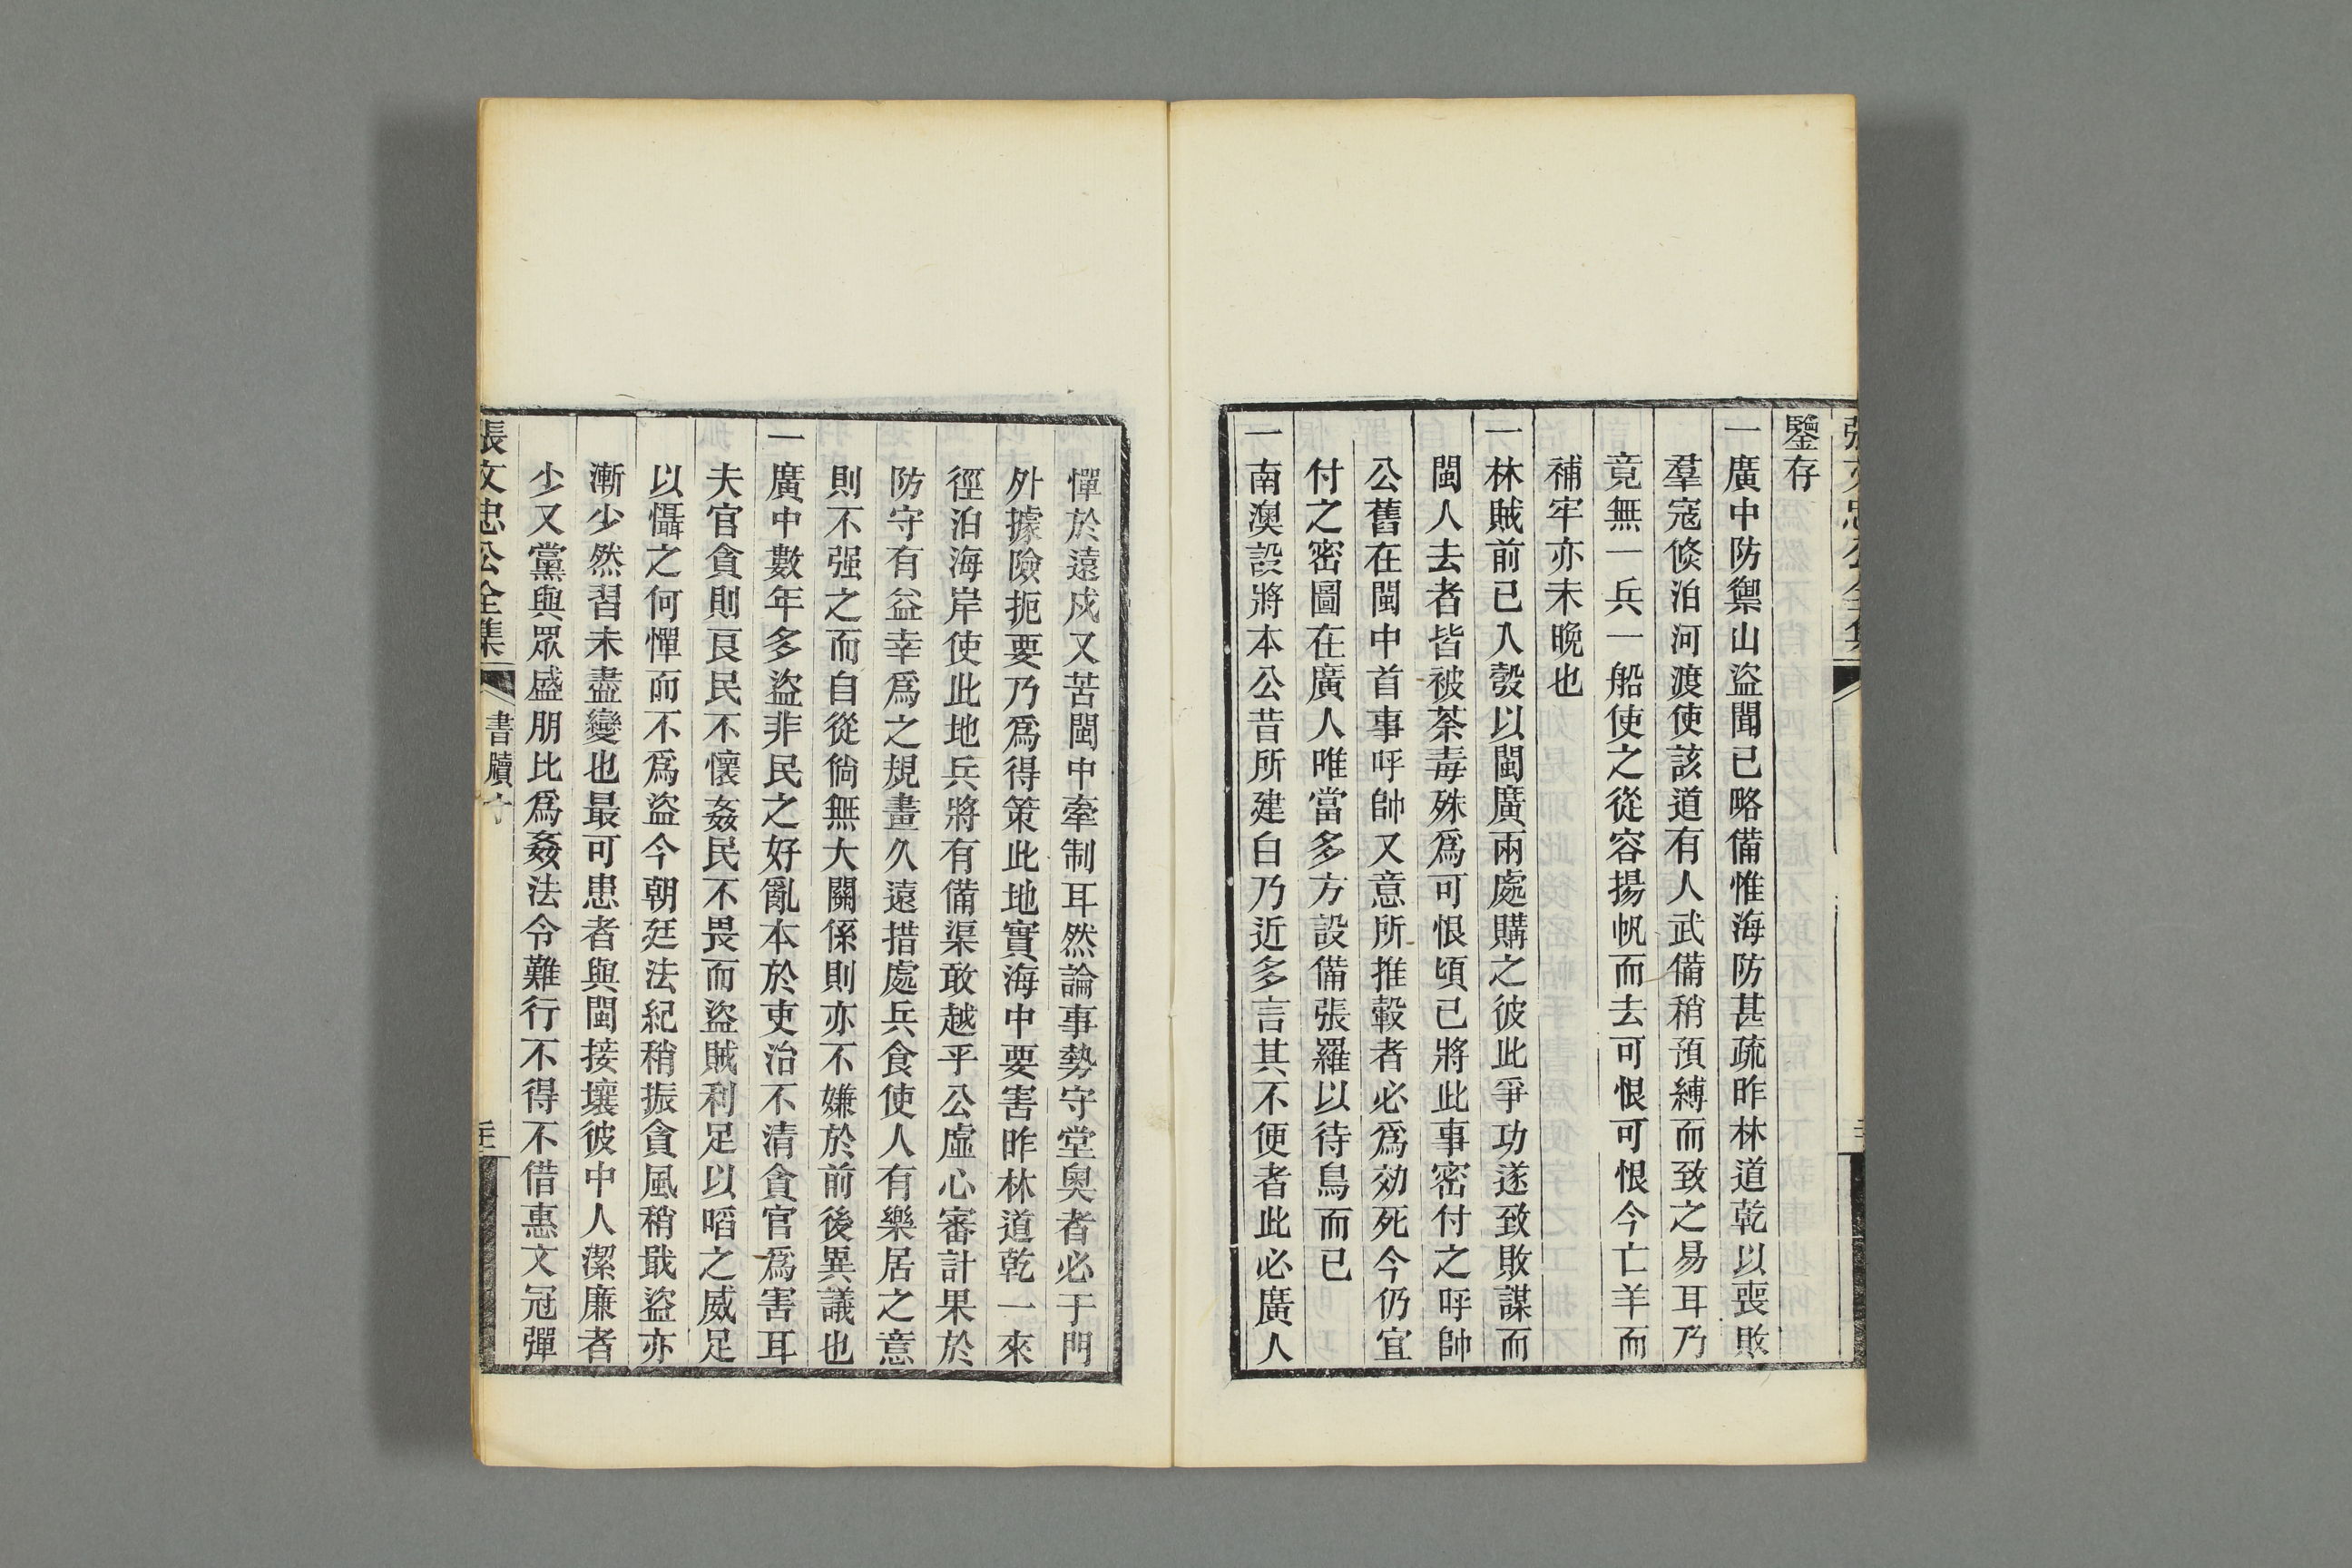 張文忠公全集
鑒存
一廣中防禦山盜聞已略備惟海防甚疏昨林道乾以喪敗
羣寇倏泊河渡使該道有人武備稍預縛而致之易耳乃
竟無一兵一船使之從容揚帆而去可恨可恨今亡羊而
補牢亦未晚也
一林賊前已入彀以閩廣兩處購之彼此爭功遂致敗謀而
閩人去者皆被荼毒殊爲可恨頃已將此事密付之呼帥
公舊在閩中首事呼帥又意所推轂者必爲効死今仍宜
付之密圖在廣人唯當多方設備張羅以待鳥而已
一南澳設將本公昔所建白乃近多言其不便者此必廣人
憚於遠戍又苦閩中牽制耳然論事勢守堂奧者必于門
外據險扼要乃爲得策此地實海中要害昨林道乾一來
徑泊海岸使此地兵將有備渠敢越乎公虛心審計果於
防守有益幸爲之規畫久遠措處兵食使人有樂居之意
則不强之而自從倘無大關係則亦不嫌於前後異議也
一廣中數年多盜非民之好亂本於吏治不清貪官爲害耳
夫官貪則良民不懷姦民不畏而盜賊利足以啗之威足
以懾之何憚而不爲盜今朝廷法紀稍振貪風稍戢盜亦
漸少然習未盡變也最可患者與閩接壤彼中人潔廉者
少又黨與眾盛朋比爲姦法令難行不得不借惠文冠彈
張文忠公全集
書牘十